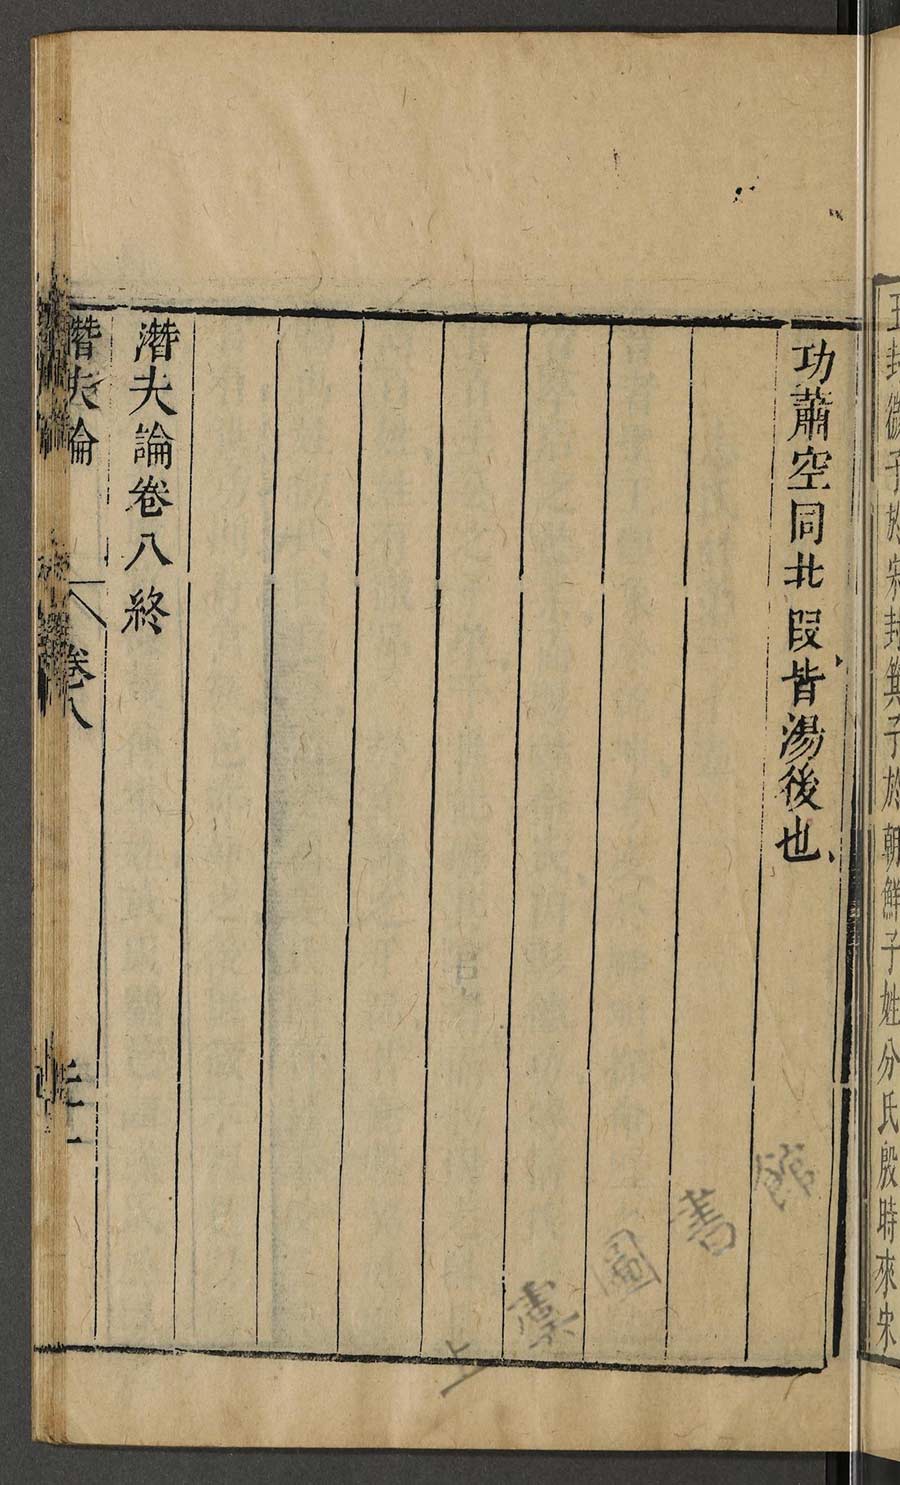 王封微子於宋封箕子於朝鮮子姓分氏殷時來宋
功蕭空同北段皆湯後也
潛夫論卷八終
潛夫論
卷八
二十一
上虞圖書館